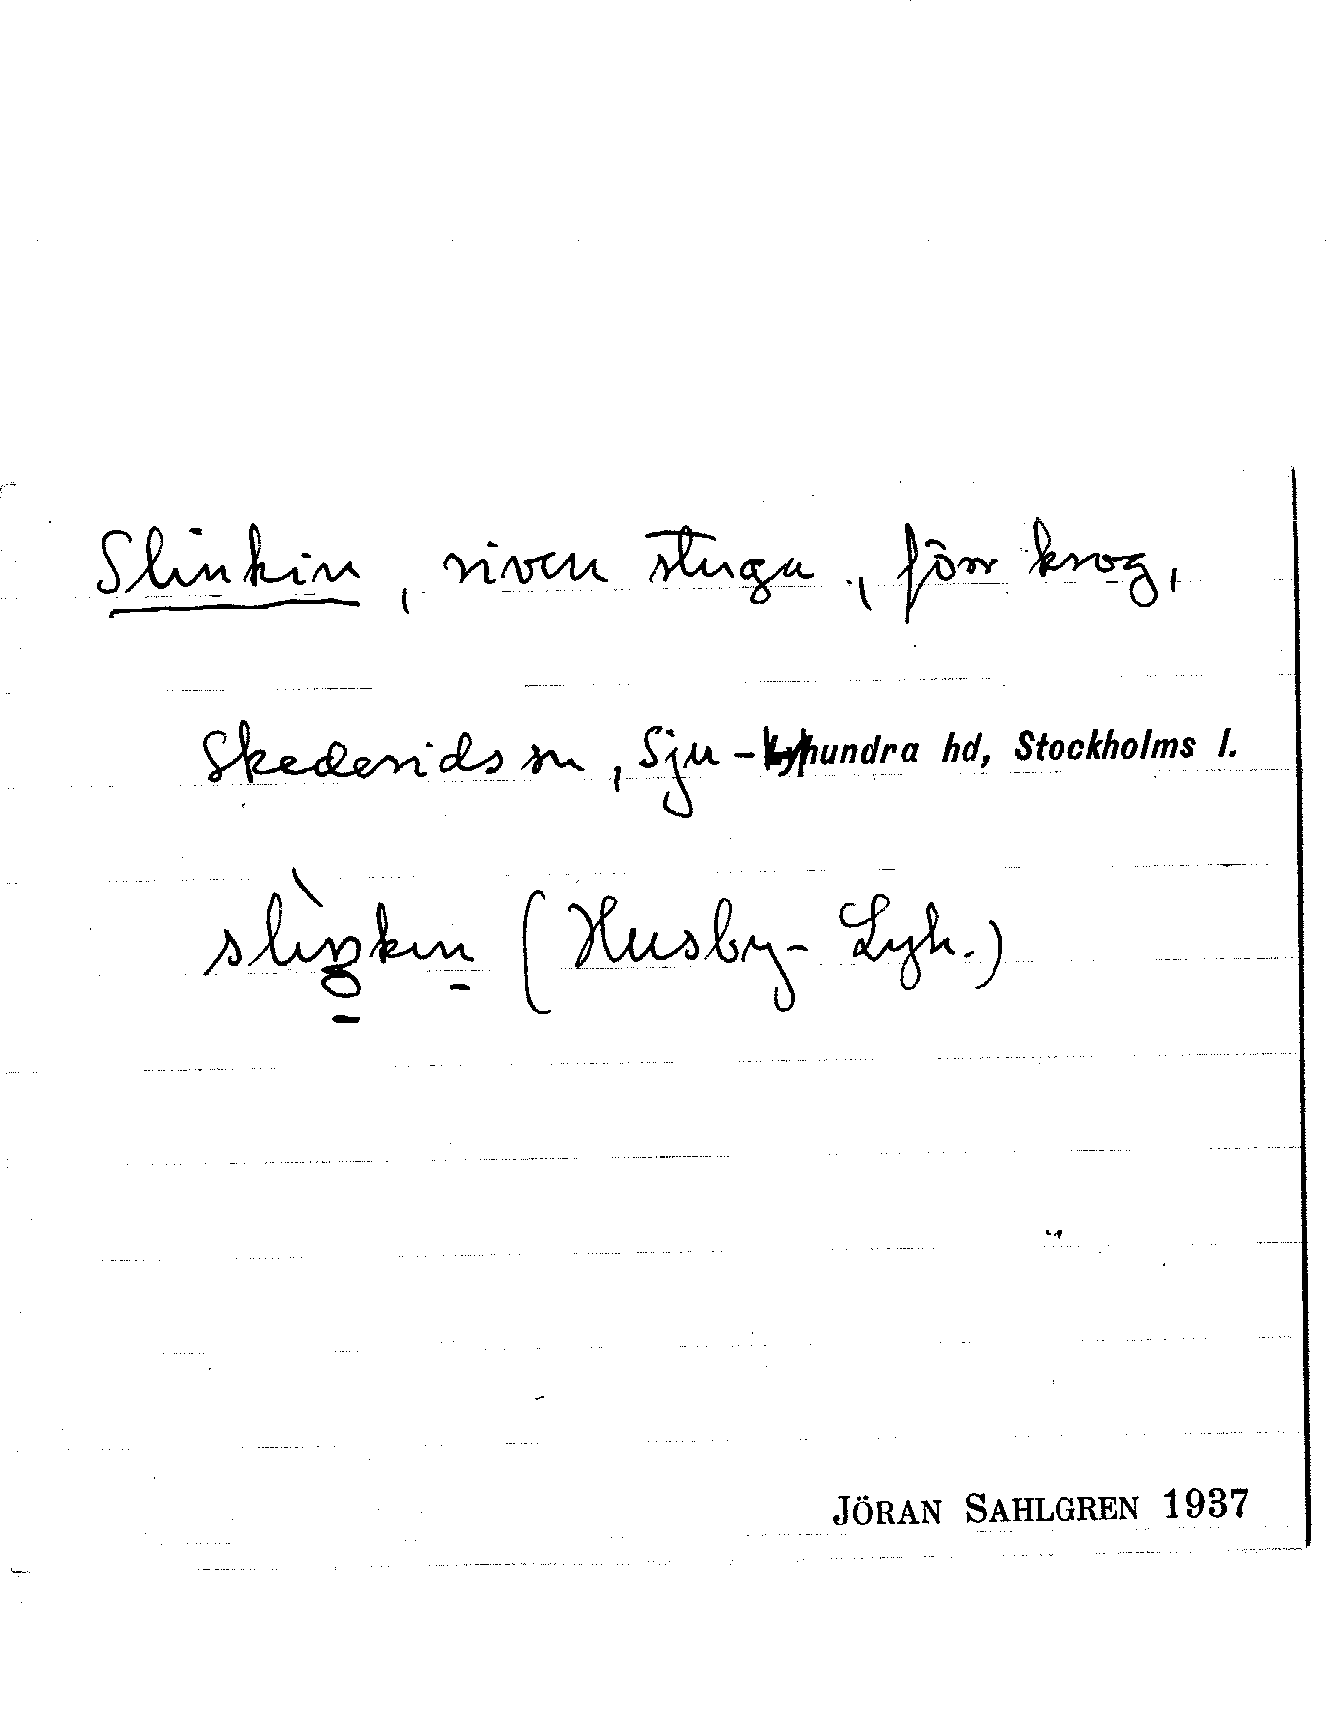 Slinkin, riven stuga, förr krog,
Skederids sn, Sju-hundra hd, Stockholms l.
slìŋkin (Husby-Lyh.)
JÖRAN SAHLGREN 1937